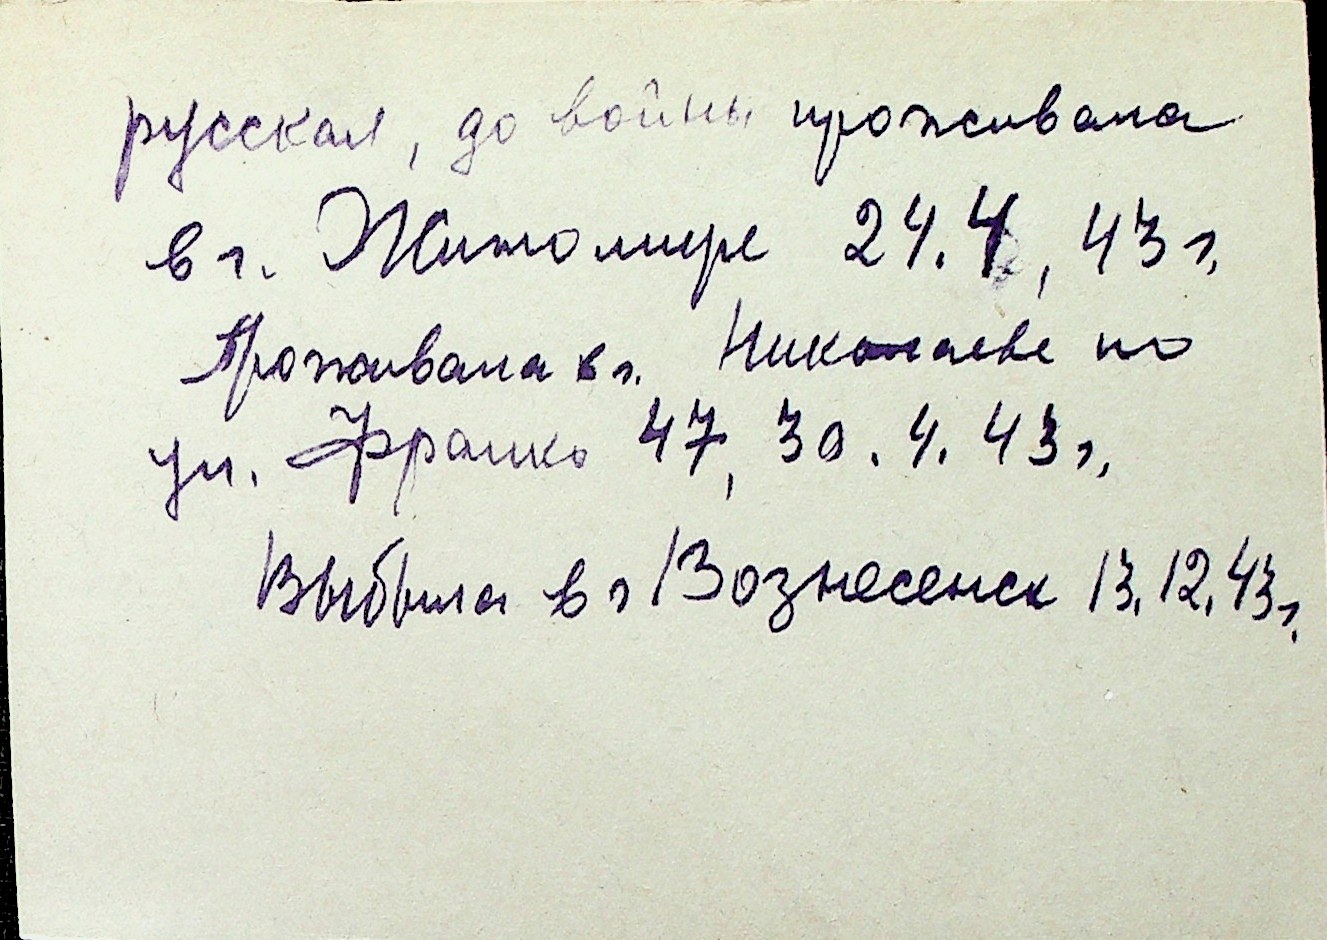 русская, до войны проживала
в г. Житомире 24.4, 43 г.
Проживала в г. Николаеве по
ул. Франко 47, 30.4.43 г.
Выбыла в г Вознесенск 13.12.43 г.